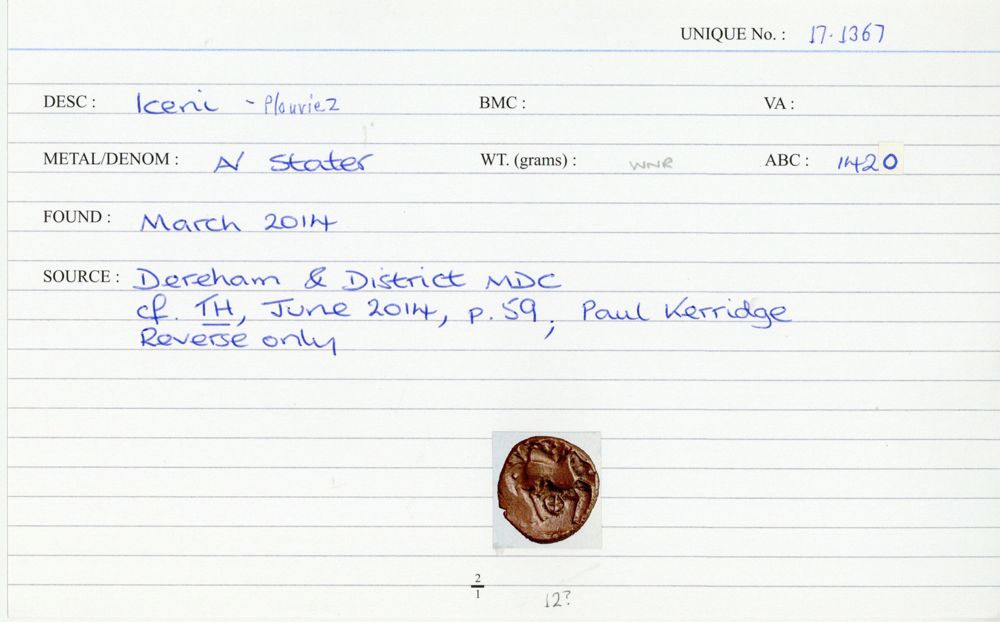 UNIQUE No. : 17.1367
DESC : Iceni - Plouviez BMC : VA :
METAL/DENOM : N Stater WT. (grams) : WNR ABC : 1420
FOUND : March 2014
SOURCE : Dereham & District MDC
cf. TH, June 2014, p.59, Paul Kerridge
Reverse only
2
1
12?